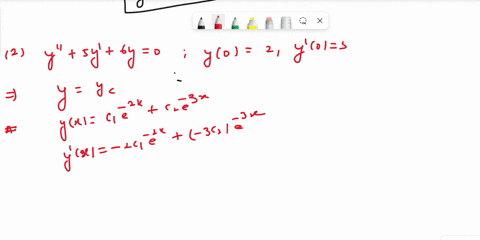 (2) y'' + 5y' + 6y = 0 ; y(0) = 2, y'(0) = 3
⇒ y = y_c
y(x) = c₁e^{-2x} + c₂e^{-3x}
y'(x) = -2c₁e^{-2x} + (-3c₂)e^{-3x}